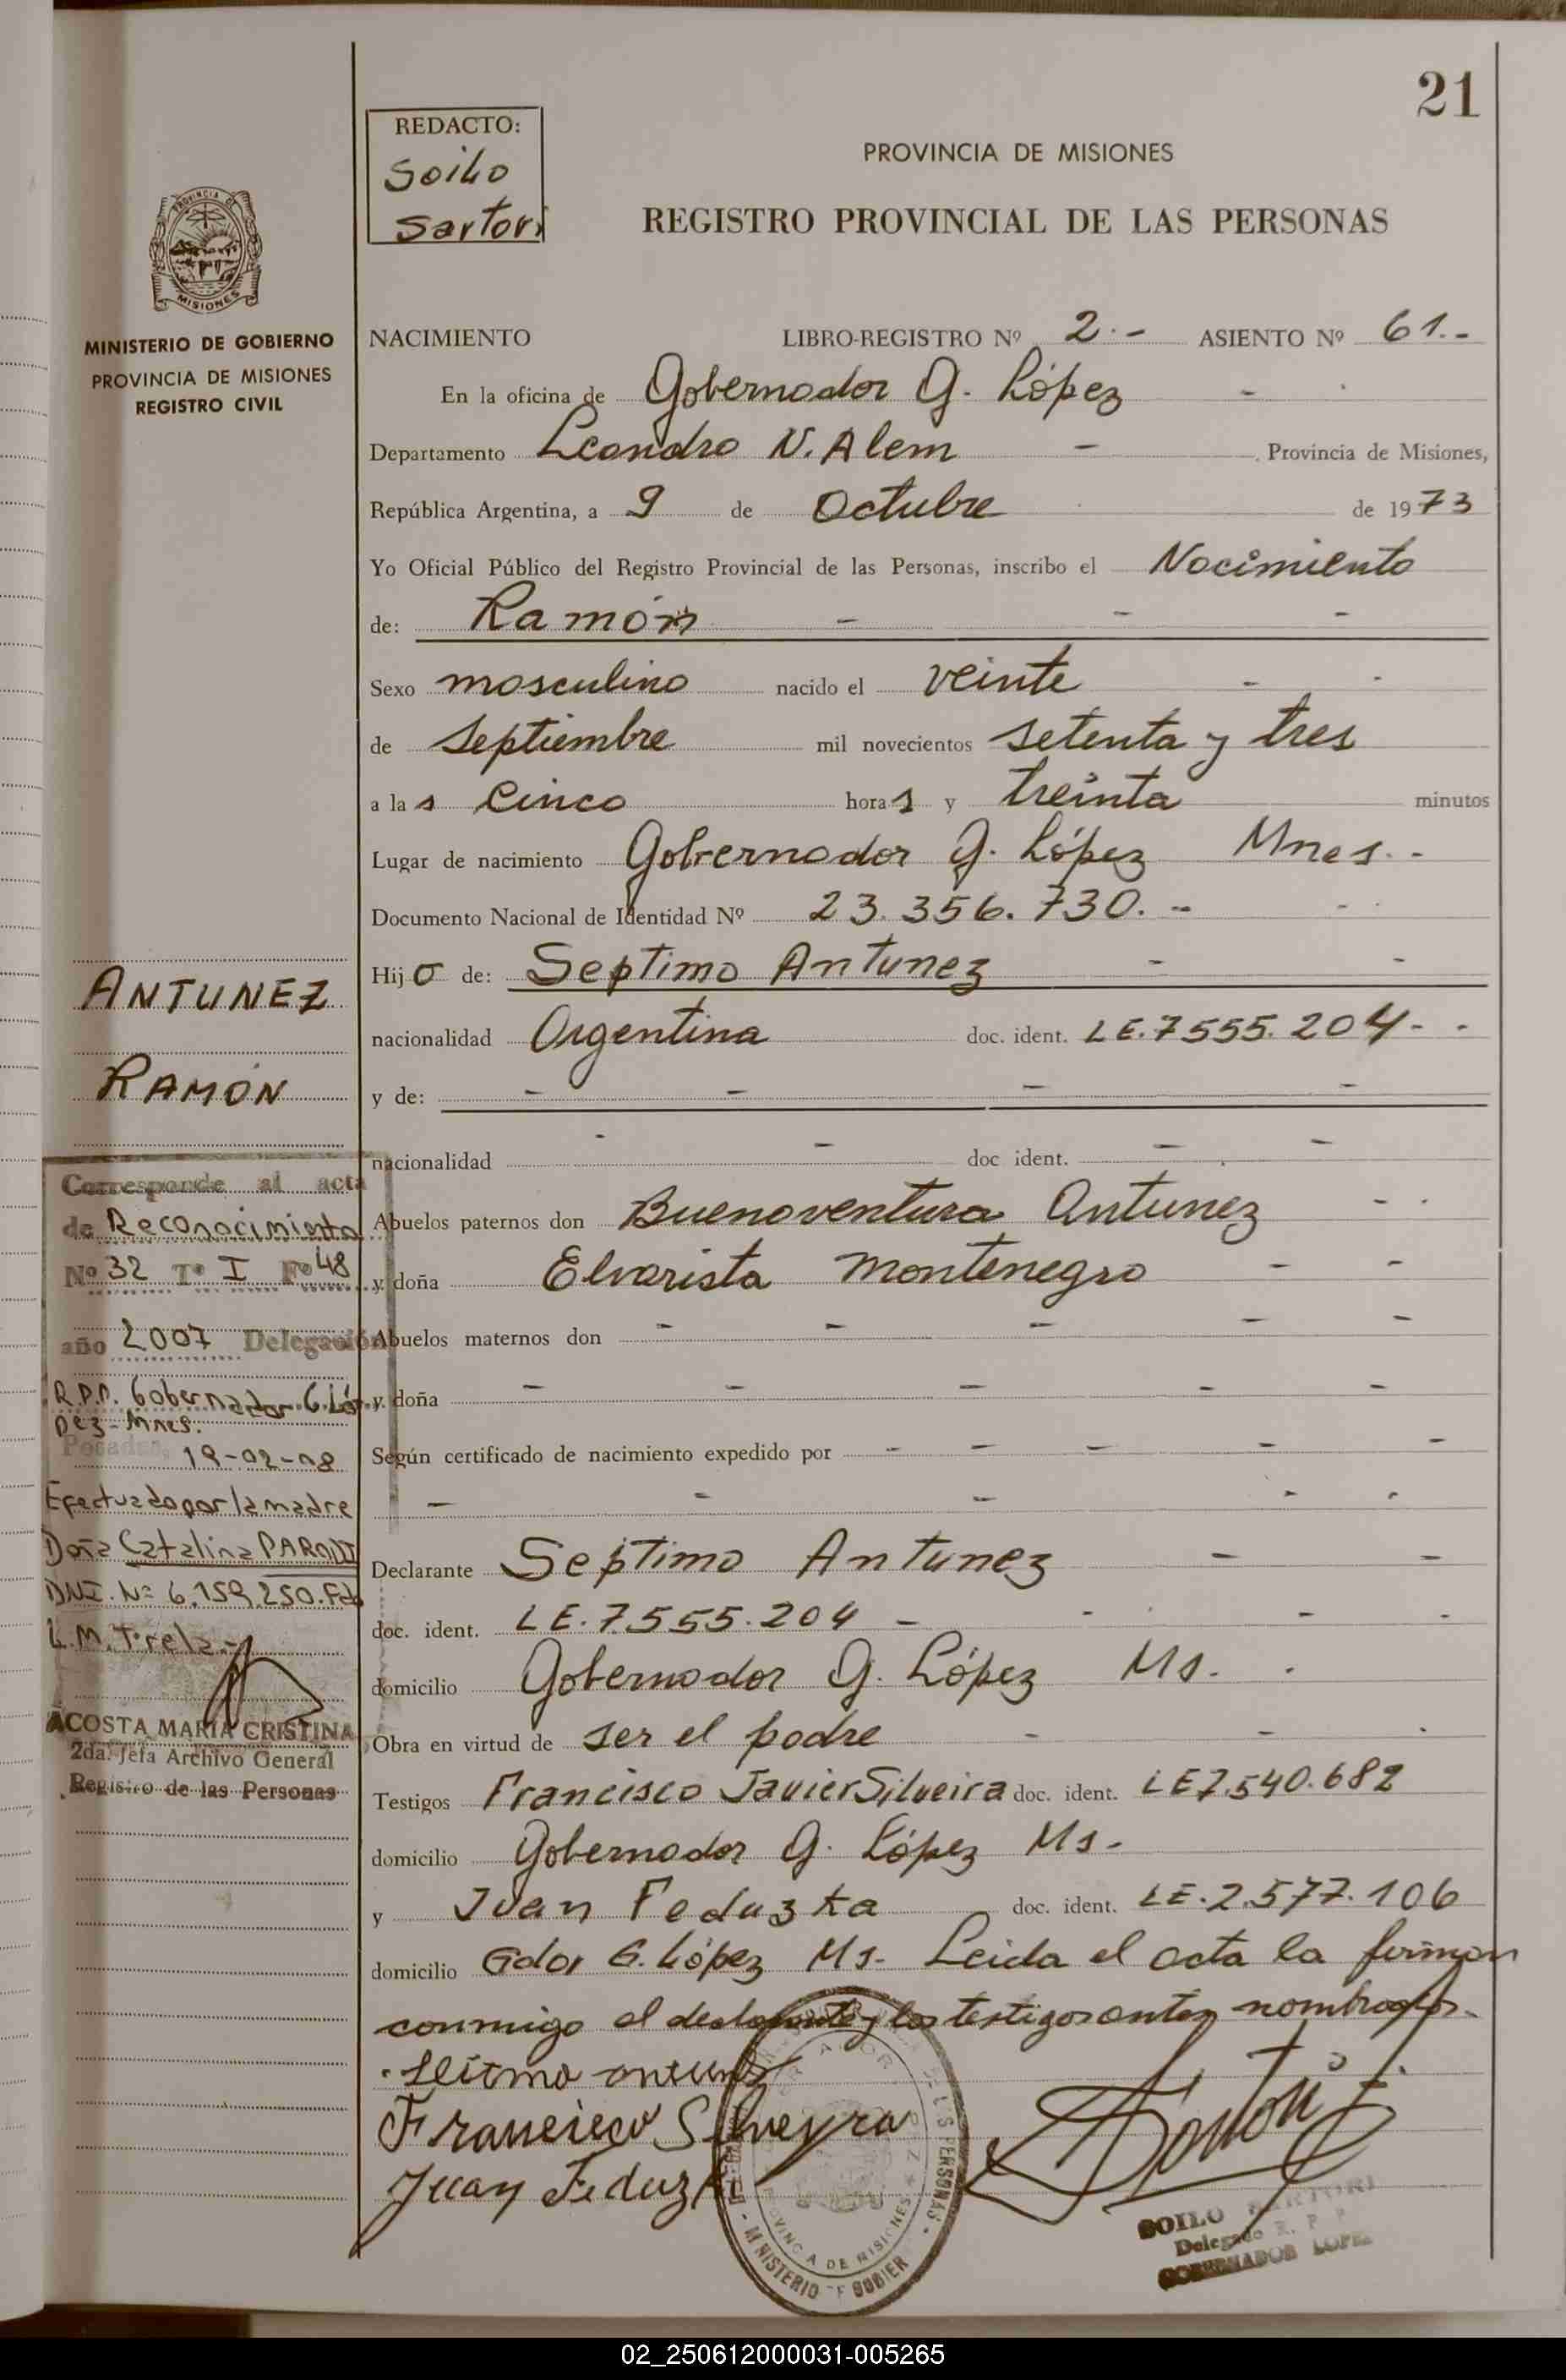 21
REDACTO:
Soilo
Sartori
PROVINCIA DE MISIONES
REGISTRO PROVINCIAL DE LAS PERSONAS
PROVINCIA DE
MISIONES
MINISTERIO DE GOBIERNO
PROVINCIA DE MISIONES
REGISTRO CIVIL
NACIMIENTO LIBRO-REGISTRO Nº 2.- ASIENTO Nº 61.-
En la oficina de Gobernador G. López -
Departamento Leandro N. Alem - Provincia de Misiones,
República Argentina, a 9 de Octubre de 1973
Yo Oficial Público del Registro Provincial de las Personas, inscribo el Nacimiento
de: Ramón - - -
Sexo masculino nacido el veinte - -
de Septiembre mil novecientos setenta y tres
a las cinco horas y treinta minutos
Lugar de nacimiento Gobernador G. López Mnes.-
Documento Nacional de Identidad Nº 23.356.730.-
Hijo de: Septimo Antunez - -
nacionalidad Argentina doc. ident. LE.7555.204- -
y de: - - - -
nacionalidad - - doc ident. - -
Abuelos paternos don Buenaventura Antunez - -
y doña Elvarista Montenegro - -
Abuelos maternos don - - - - -
y doña - - - - -
Según certificado de nacimiento expedido por - - - - -
- - - - -
Declarante Septimo Antunez - -
doc. ident. LE.7.555.204 - - - -
domicilio Gobernador G. López Ms. -
Obra en virtud de ser el padre - - -
Testigos Francisco Javier Silveira doc. ident. LE7.540.682
domicilio Gobernador G. López Ms-
y Juan Feduzka doc. ident. LE.2.577.106
domicilio Gdor G. López Ms- Leida el acta la firman
conmigo el declarante y los testigos antes nombrados.
Francisco Silveyra
Juan Feduzka
ANTUNEZ
RAMÓN
Corresponde al acta
de Reconocimiento
Nº 32 Tº I Fº 48
año 2007 Delegación
R.P.P. Gobernador G. Ló-
pez-Mnes.
Posadas, 19-02-08
Efectuado por la madre
Doña Catalina PARODI
DNI. Nº 6.159.250. Fdo
L.M. Trela.-
ACOSTA MARIA CRISTINA
2da. Jefa Archivo General
Registro de las Personas
MINISTERIO DE GOBIER
PROVINCIA DE MISIONES
DE LAS PERSONAS
SOILO SARTORI
Delegado R. P. P.
GOBERNADOR LOPEZ
02_250612000031-005265